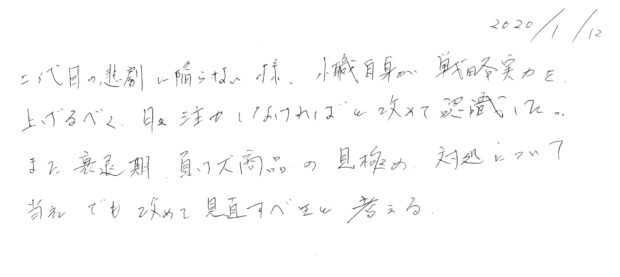 2020/1/12
二代目の悲劇に陥らない様、小職自身が戦略実力を
上げるべく、日々注力しなければと改めて認識した。
また衰退期、負け犬商品の見極め、対処について
当社でも改めて見直すべきと考える。